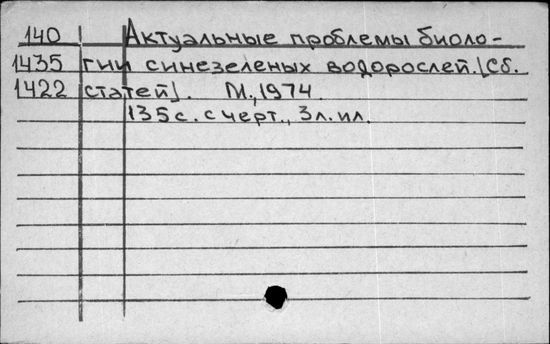 140 Актуальные проблемы биоло-
1435 гии синезеленых водорослей. [Сб.
1422 статей]. М., 1974.
135 с. с черт., 3 л. ил.